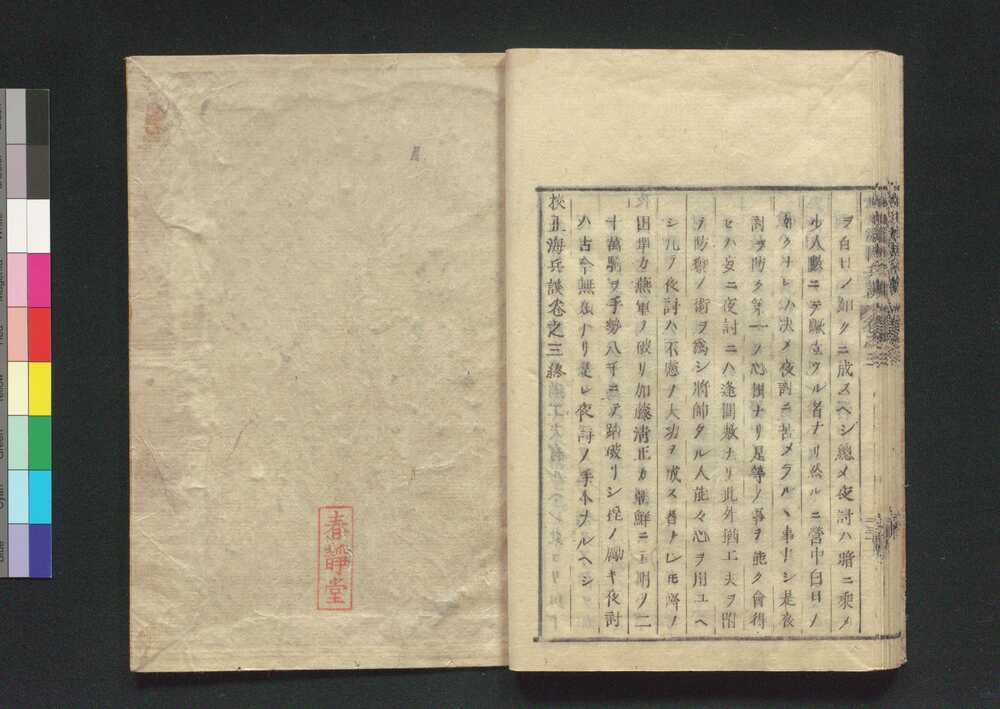 ヲ白日ノ如クニ成スヘシ總メ夜討ハ暗ニ乘メ
ル人數ニテ蹶立ツル者ナリ然ルニ營中白日ノ
如クナレハ决メ夜討ニ苦メラルヽ事ナシ是夜
討ヲ防ク第一ノ心掛ナリ是等ノ事ヲ能ク會得
セハ妄ニ夜討ニハ逢間敷ナリ此外猶工夫ヲ附
ヲ防禦ノ術ヲ爲シ將帥タル人能々心ヲ用ユヘ
シ凡ソ夜討ハ不慮ノ大功ヲ成ス者ナレ𪜈
田單カ燕軍ノ破リ加藤清正カ朝鮮ニテ明ノ二
十萬騎ヲ手勢八千ニテ踏破リシ程ノ勵キ夜討
ハ古今無類ナリ是レ夜討ノ手本ナルヘシ
校正海兵談卷之三終
春靜堂